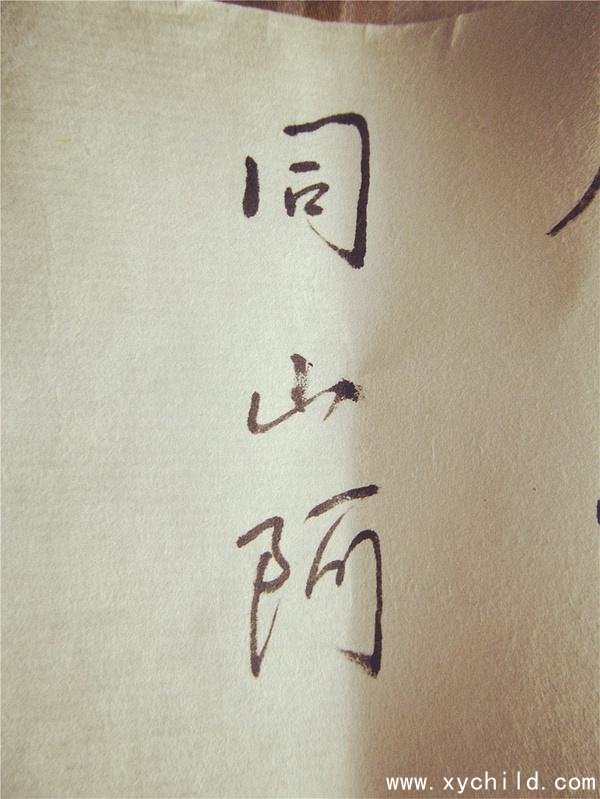 同山阿
www.xychild.com